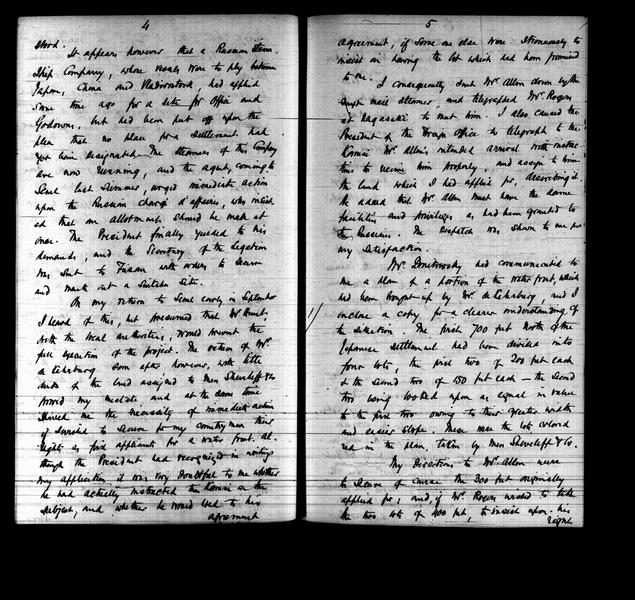 4
stood.
It appears however that a Russian Steam
Ship Company, whose vessels were to ply between
Japan, China and Vladivostock, had applied
some time ago for a site for Office and
Godowns, but had been put off upon the
plea that no place for a settlement had
yet been designated. The steamers of this Company
are now running, and the agent, coming to
Seoul last Summer, urged immediate action
upon the Russian Chargé d'affaires, who insist-
ed that an allotment should be made at
once. The President finally yielded to his
demands, and the Secretary of the Legation
was sent to Fusan with orders to secure
and mark out a suitable site.
On my return to Seoul early in September
I heard of this, but presumed that Mr Hunt,
with the local authorities, would prevent the
full execution of the project. The return of Mr.
soon after however, with title
deeds of the land assigned to
proved my mistake and at the same time
showed me the necessity of immediate action
if I wished to secure for my countrymen their
right as first applicants for a water front. Al-
though the President had recognized in writing
my application it was very doubtful to me whether
he had actually instructed the Kamni on the
subject, and whether he would hold to his
agreement
5
agreement, if some one else were strenuously to
insist on having the lot which had been promised
to me.
I consequently sent Mr. Allen down by the
mail steamer, and telegraphed Mr. Rogers
at Nagasaki to meet him. I also caused the
President of the Foreign Office to telegraph to the
Kamni Mr. Allen's intended arrival with instruc-
tions to receive him properly, and assign to him
the land which I had applied for, describing it.
He added that Mr Allen must have the same
facilities and privileges as had been granted to
the Russians. The despatch was shown to me for
my satisfaction.
Mr. had communicated to
me a plan of a portion of the water front, which
had been brought up by Mr. and I
enclose a copy, for a clearer understanding of
the situation. The first 700 feet North of the
Japanese settlement had been divided into
four lots, the first two of 200 feet each
& the second two of 150 feet each — the second
two being looked upon as equal in value
to the first two owing to their greater width
and easier slope. These were the lots colored
red in the plan, taken by & Co.
My directions to Mr. Allen were
to secure of course the 300 feet originally
applied for; and, if Mr. Rogers wished to take
the two lots of 400 feet, to insist upon his
right